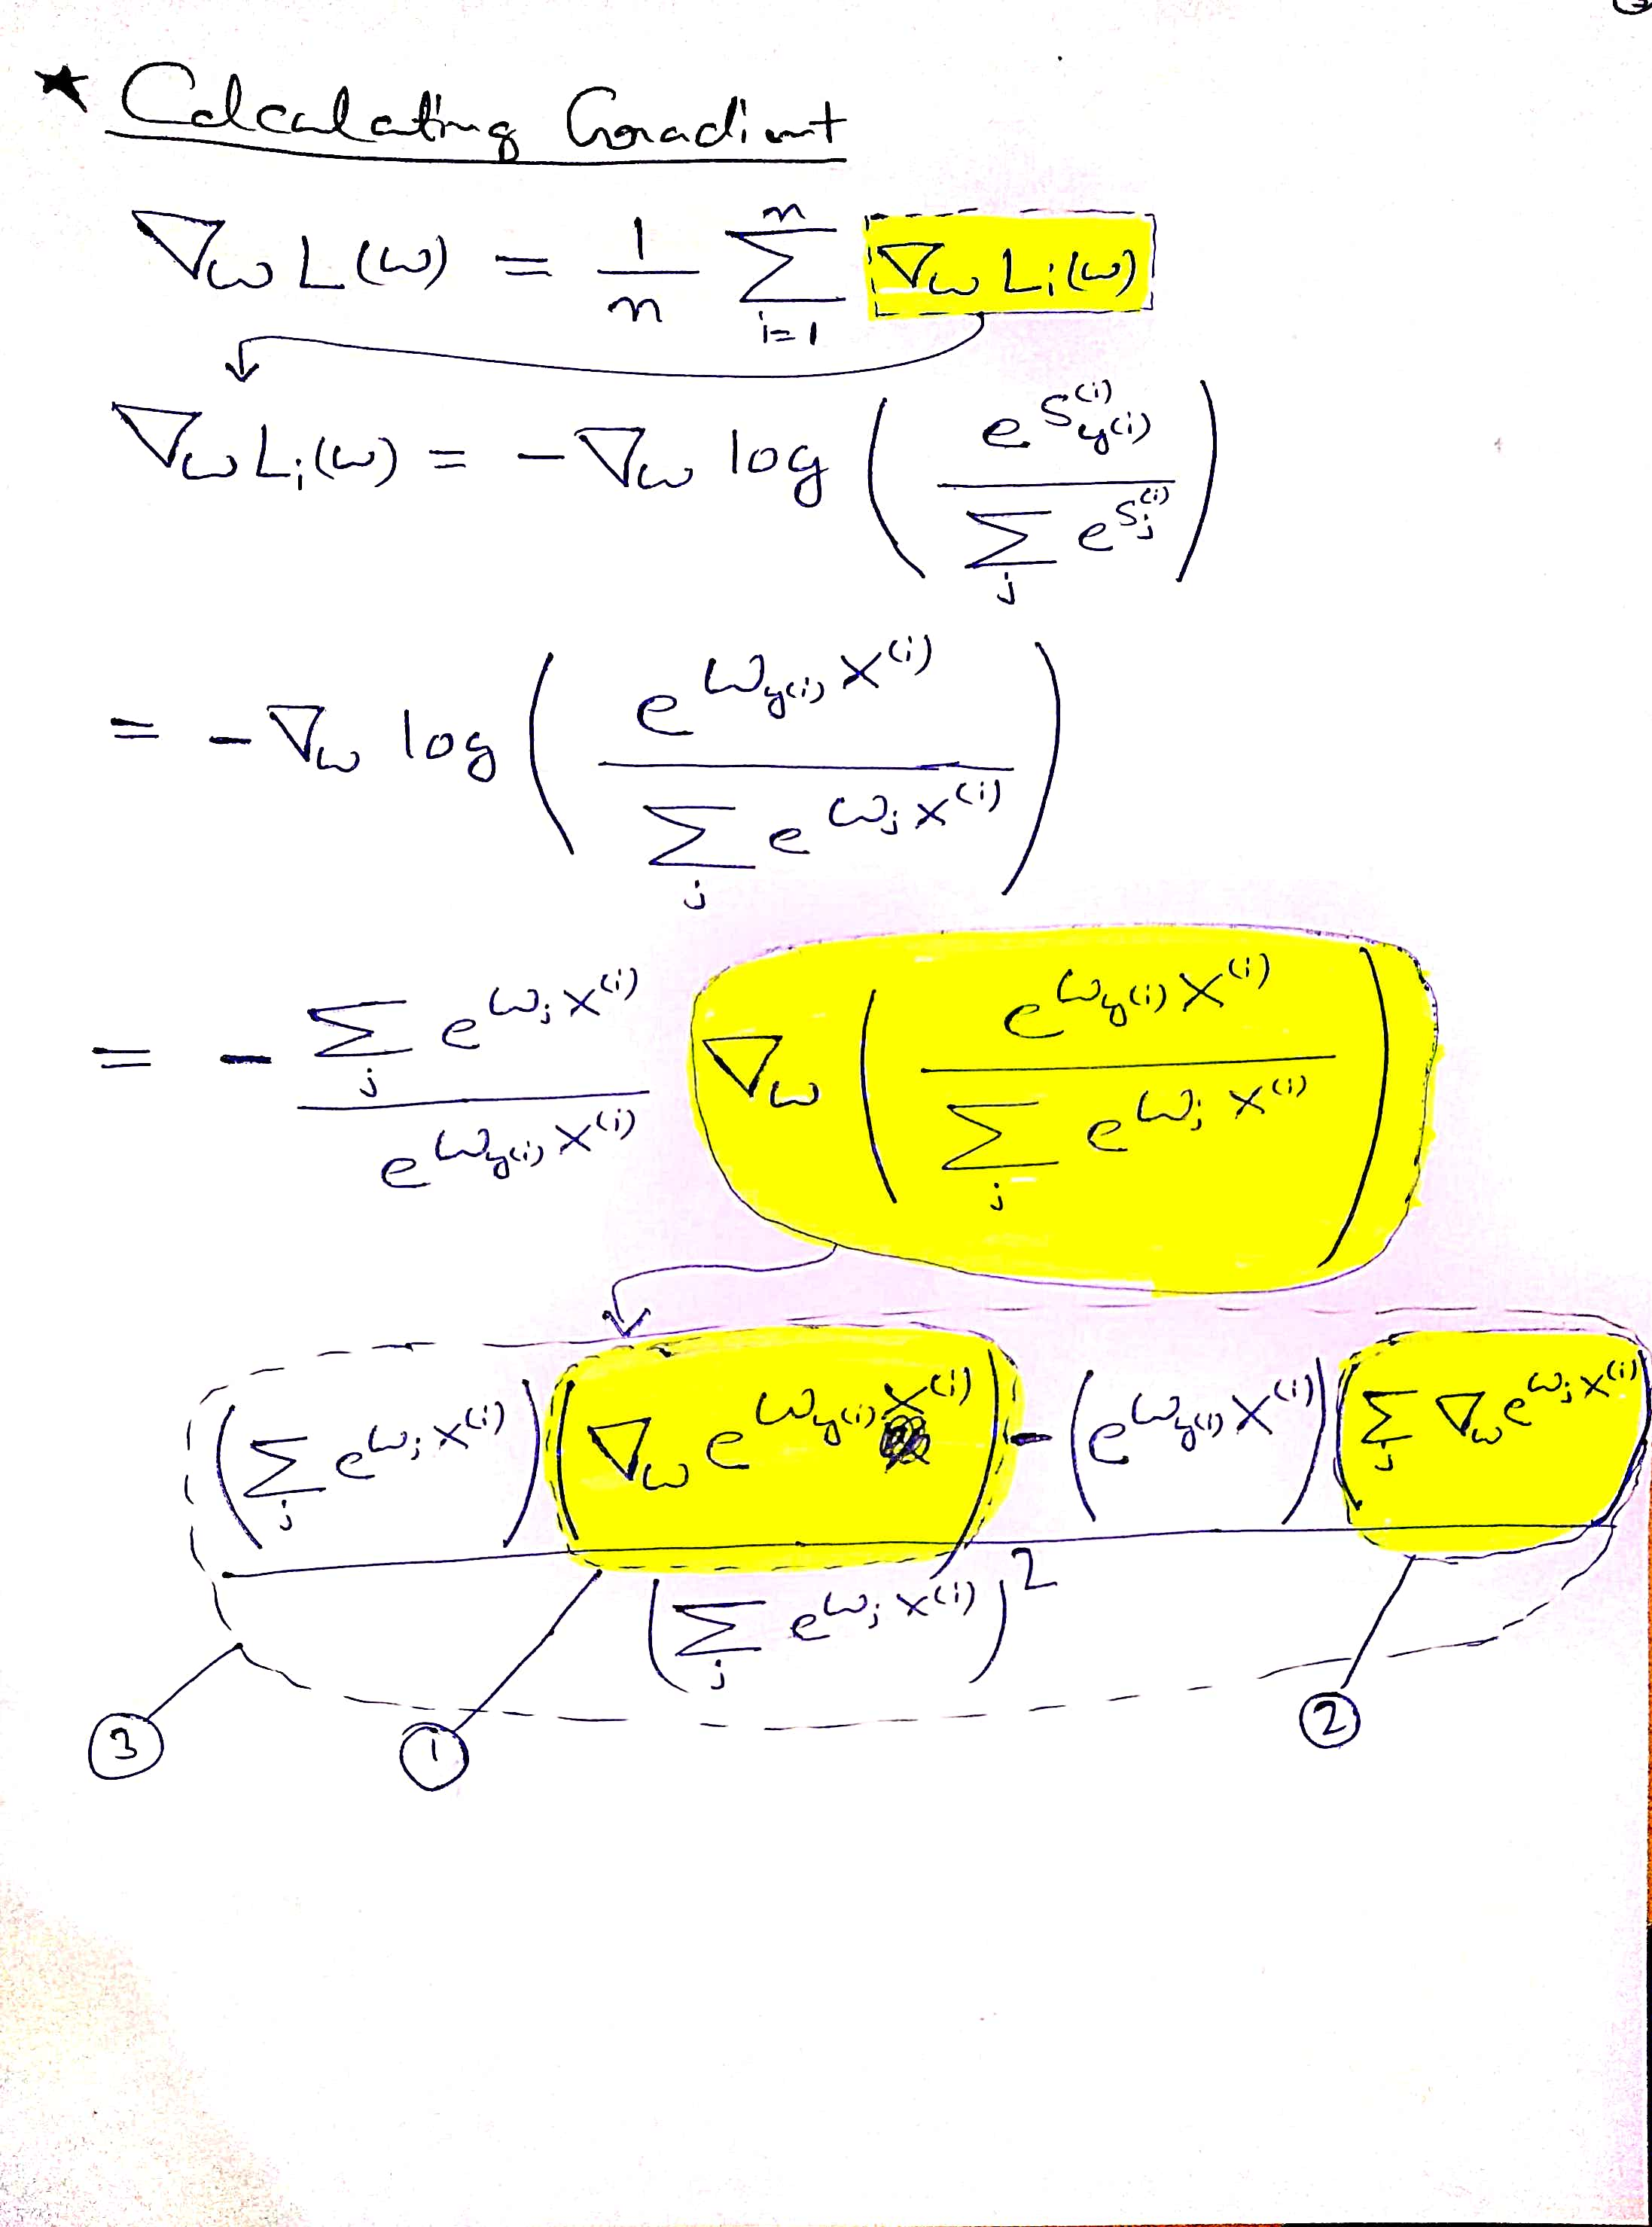 ★ Calculating Gradient
∇_ω L(ω) = 1/n Σ_{i=1}^{n} ∇_ω L_i(ω)
∇_ω L_i(ω) = - ∇_ω log ( e^{S_{y(i)}^{(i)}} / Σ_j e^{S_j^{(i)}} )
= - ∇_ω log ( e^{ω_{y(i)} x^{(i)}} / Σ_j e^{ω_j x^{(i)}} )
= - Σ_j e^{ω_j x^{(i)}} / e^{ω_{y(i)} x^{(i)}} ∇_ω ( e^{ω_{y(i)} x^{(i)}} / Σ_j e^{ω_j x^{(i)}} )
(Σ_j e^{ω_j x^{(i)}}) (∇_ω e^{ω_{y(i)} x^{(i)}}) - (e^{ω_{y(i)} x^{(i)}}) (Σ_j ∇_ω e^{ω_j x^{(i)}})
(Σ_j e^{ω_j x^{(i)}})^2
③ ① ②